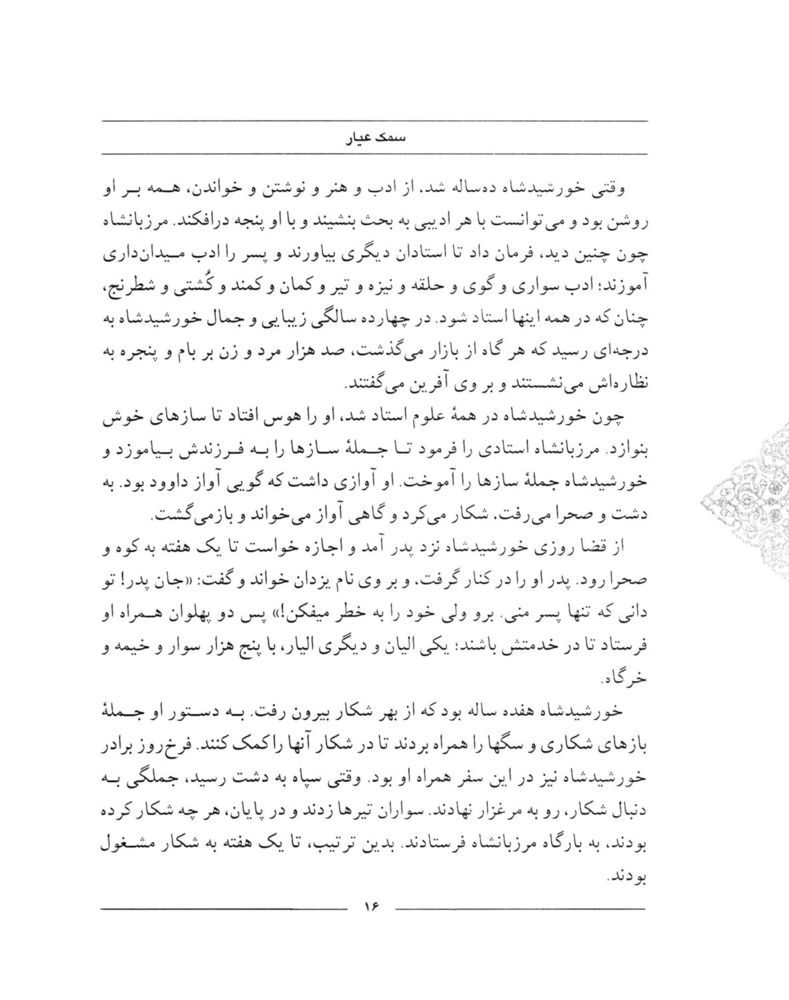 سمک عیار
وقتی خورشیدشاه ده‌ساله شد، از ادب و هنر و نوشتن و خواندن، همه بر او
روشن بود و می‌توانست با هر ادیبی به بحث بنشیند و با او پنجه درافکند. مرزبانشاه
چون چنین دید، فرمان داد تا استادان دیگری بیاورند و پسر را ادب میدان‌داری
آموزند؛ ادب سواری و گوی و حلقه و نیزه و تیر و کمان و کمند و کُشتی و شطرنج،
چنان که در همه اینها استاد شود. در چهارده سالگی زیبایی و جمال خورشیدشاه به
درجه‌ای رسید که هر گاه از بازار می‌گذشت، صد هزار مرد و زن بر بام و پنجره به
نظاره‌اش می‌نشستند و بر وی آفرین می‌گفتند.
چون خورشیدشاه در همهٔ علوم استاد شد، او را هوس افتاد تا سازهای خوش
بنوازد. مرزبانشاه استادی را فرمود تا جملهٔ سازها را به فرزندش بیاموزد و
خورشیدشاه جملهٔ سازها را آموخت. او آوازی داشت که گویی آواز داوود بود. به
دشت و صحرا می‌رفت، شکار می‌کرد و گاهی آواز می‌خواند و بازمی‌گشت.
از قضا روزی خورشیدشاه نزد پدر آمد و اجازه خواست تا یک هفته به کوه و
صحرا رود. پدر او را در کنار گرفت، و بر وی نام یزدان خواند و گفت: «جان پدر! تو
دانی که تنها پسر منی. برو ولی خود را به خطر میفکن!» پس دو پهلوان همراه او
فرستاد تا در خدمتش باشند؛ یکی الیان و دیگری الیار، با پنج هزار سوار و خیمه و
خرگاه.
خورشیدشاه هفده ساله بود که از بهر شکار بیرون رفت. به دستور او جملهٔ
بازهای شکاری و سگها را همراه بردند تا در شکار آنها را کمک کنند. فرخ‌روز برادر
خورشیدشاه نیز در این سفر همراه او بود. وقتی سپاه به دشت رسید، جملگی به
دنبال شکار، رو به مرغزار نهادند. سواران تیرها زدند و در پایان، هر چه شکار کرده
بودند، به بارگاه مرزبانشاه فرستادند. بدین ترتیب، تا یک هفته به شکار مشغول
بودند.
۱۶